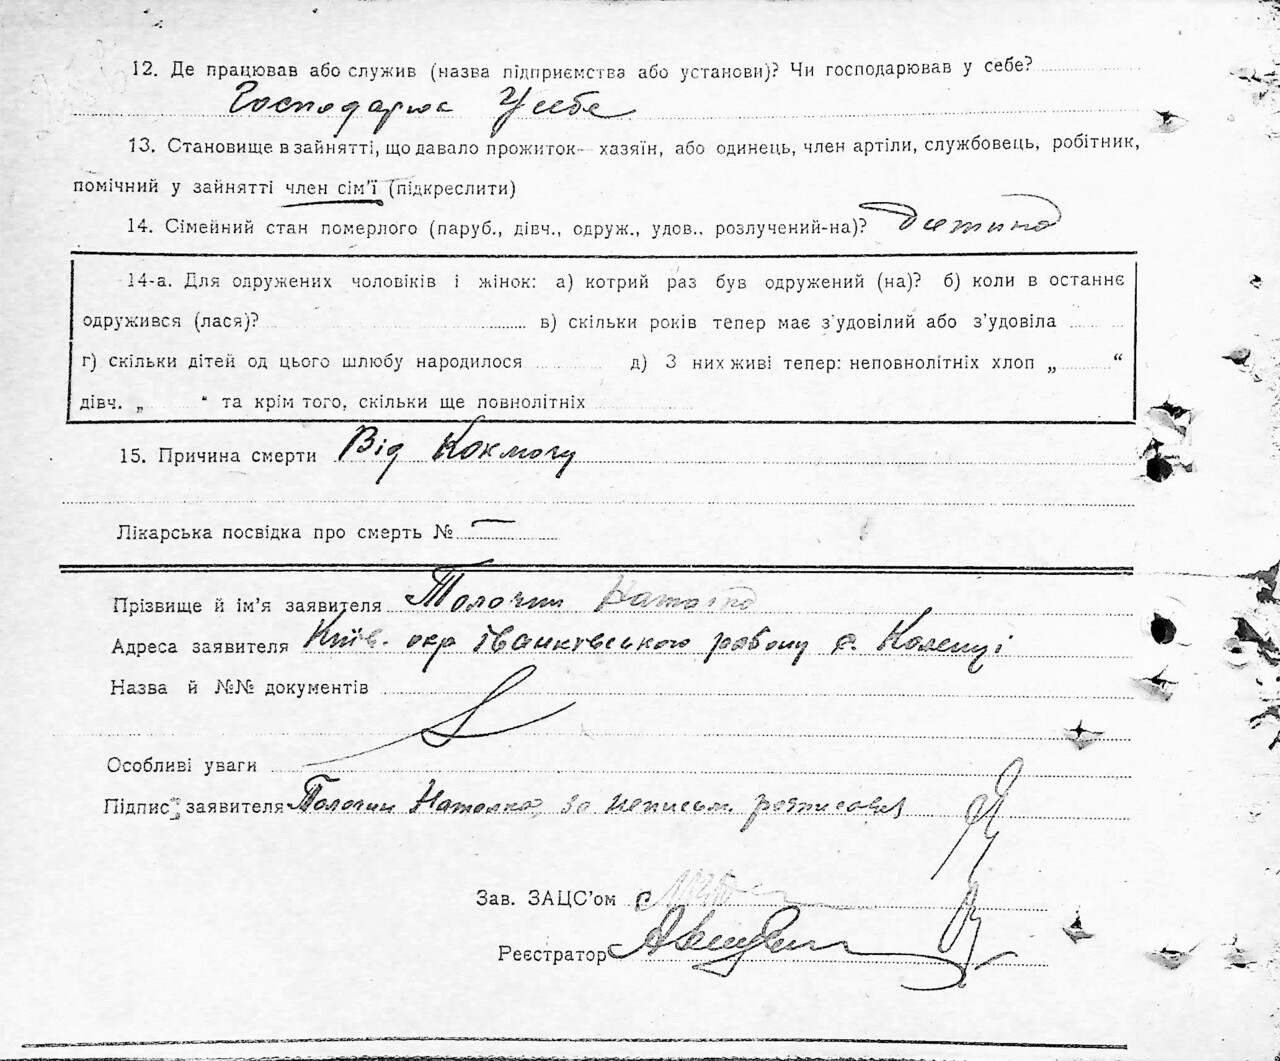 12. Де працював або служив (назва підприємства або установи)? Чи господарював у себе?
Господарює У себе
13. Становище в зайнятті, що давало прожиток— хазяїн, або одинець, член артіли, службовець, робітник,
помічний у зайнятті член сім'ї (підкреслити)
14. Сімейний стан померлого (паруб., дівч., одруж., удов., розлучений-на)? Дитина
14-а. Для одружених чоловіків і жінок: а) котрий раз був одружений (на)? б) коли в останнє
одружився (лася)? в) скільки років тепер має з'удовілий або з'удовіла
г) скільки дітей од цього шлюбу народилося д) З них живі тепер: неповнолітніх хлоп „ “
дівч. „ “ та крім того, скільки ще повнолітніх
15. Причина смерти Від Коклюшу
Лікарська посвідка про смерть № —
Прізвище й ім'я заявителя Толочин Наталка
Адреса заявителя Київ. окр Іванківського району с. Коленці
Назва й №№ документів
Особливі уваги
Підпис заявителя Толочин Наталка, за неписьм. розписався
Зав. ЗАЦС'ом
Реєстратор